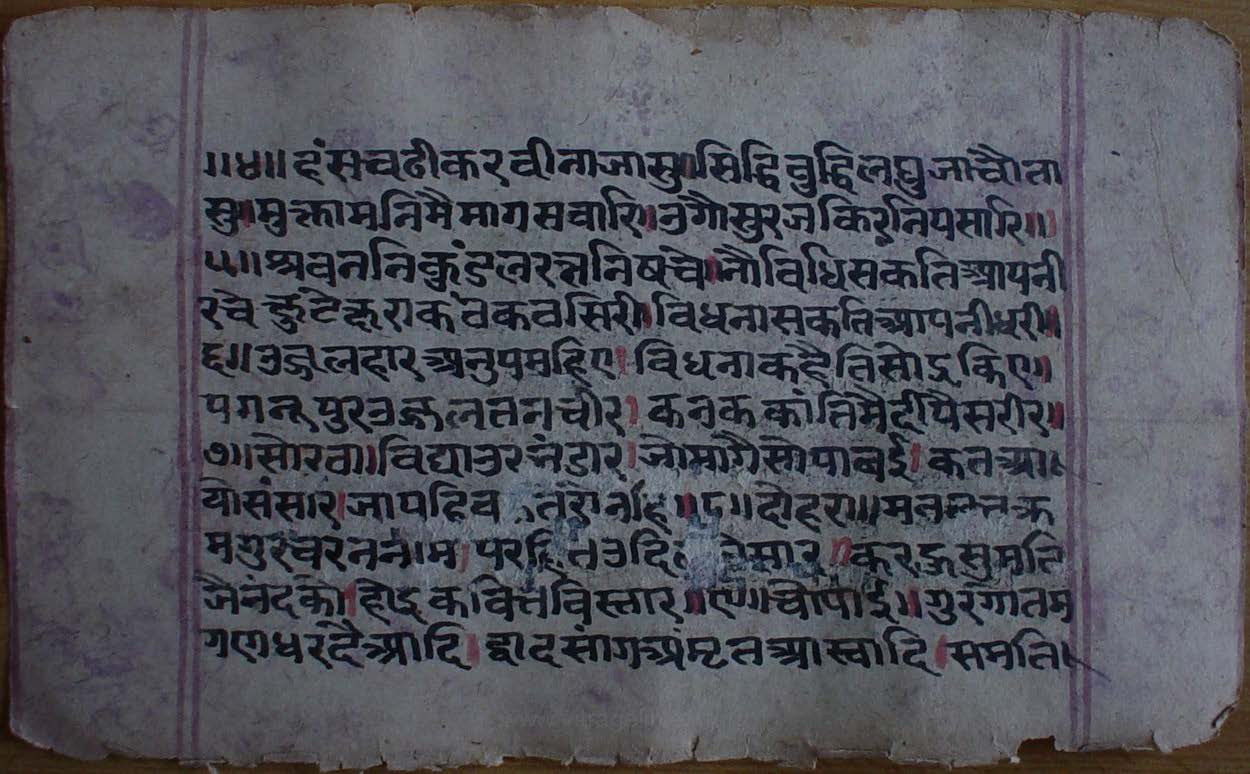 ॥४॥ हंस चढी कर वीना जासु । सिद्धि वुद्धि लघु जाचौ ता
सु । मुक्तामनिमै माग सवारि । उगौ सुरज किरनि पसारि ॥
५॥ श्रवननि कुंडल रत्ननि षचे । नौ विधि सकति आपनी
रचे कंवकवसिरी । विधना सकति आपनी धरी ।
६॥ उज्जल हार अनुपम हिए । विधना कहै तिसोइ किए ॥
पग नूपुर उज्जल तन चीर । कनक कांति मै दीपै सरीर ॥
७॥ सोरठा । विद्या उर भंडार । जो मागै सो पावई । कत आ
यो संसार । जा पहि नहि ॥८॥ दोहरा ॥
म गुर चरनन । म । परहित करहु सुमति
जैनंद को । होइ कवित विस्तार ॥९॥ चौपाई ॥ गुर गोतम
गणधर दै आदि । द्वादसांग अमृत आस्वादि । समति